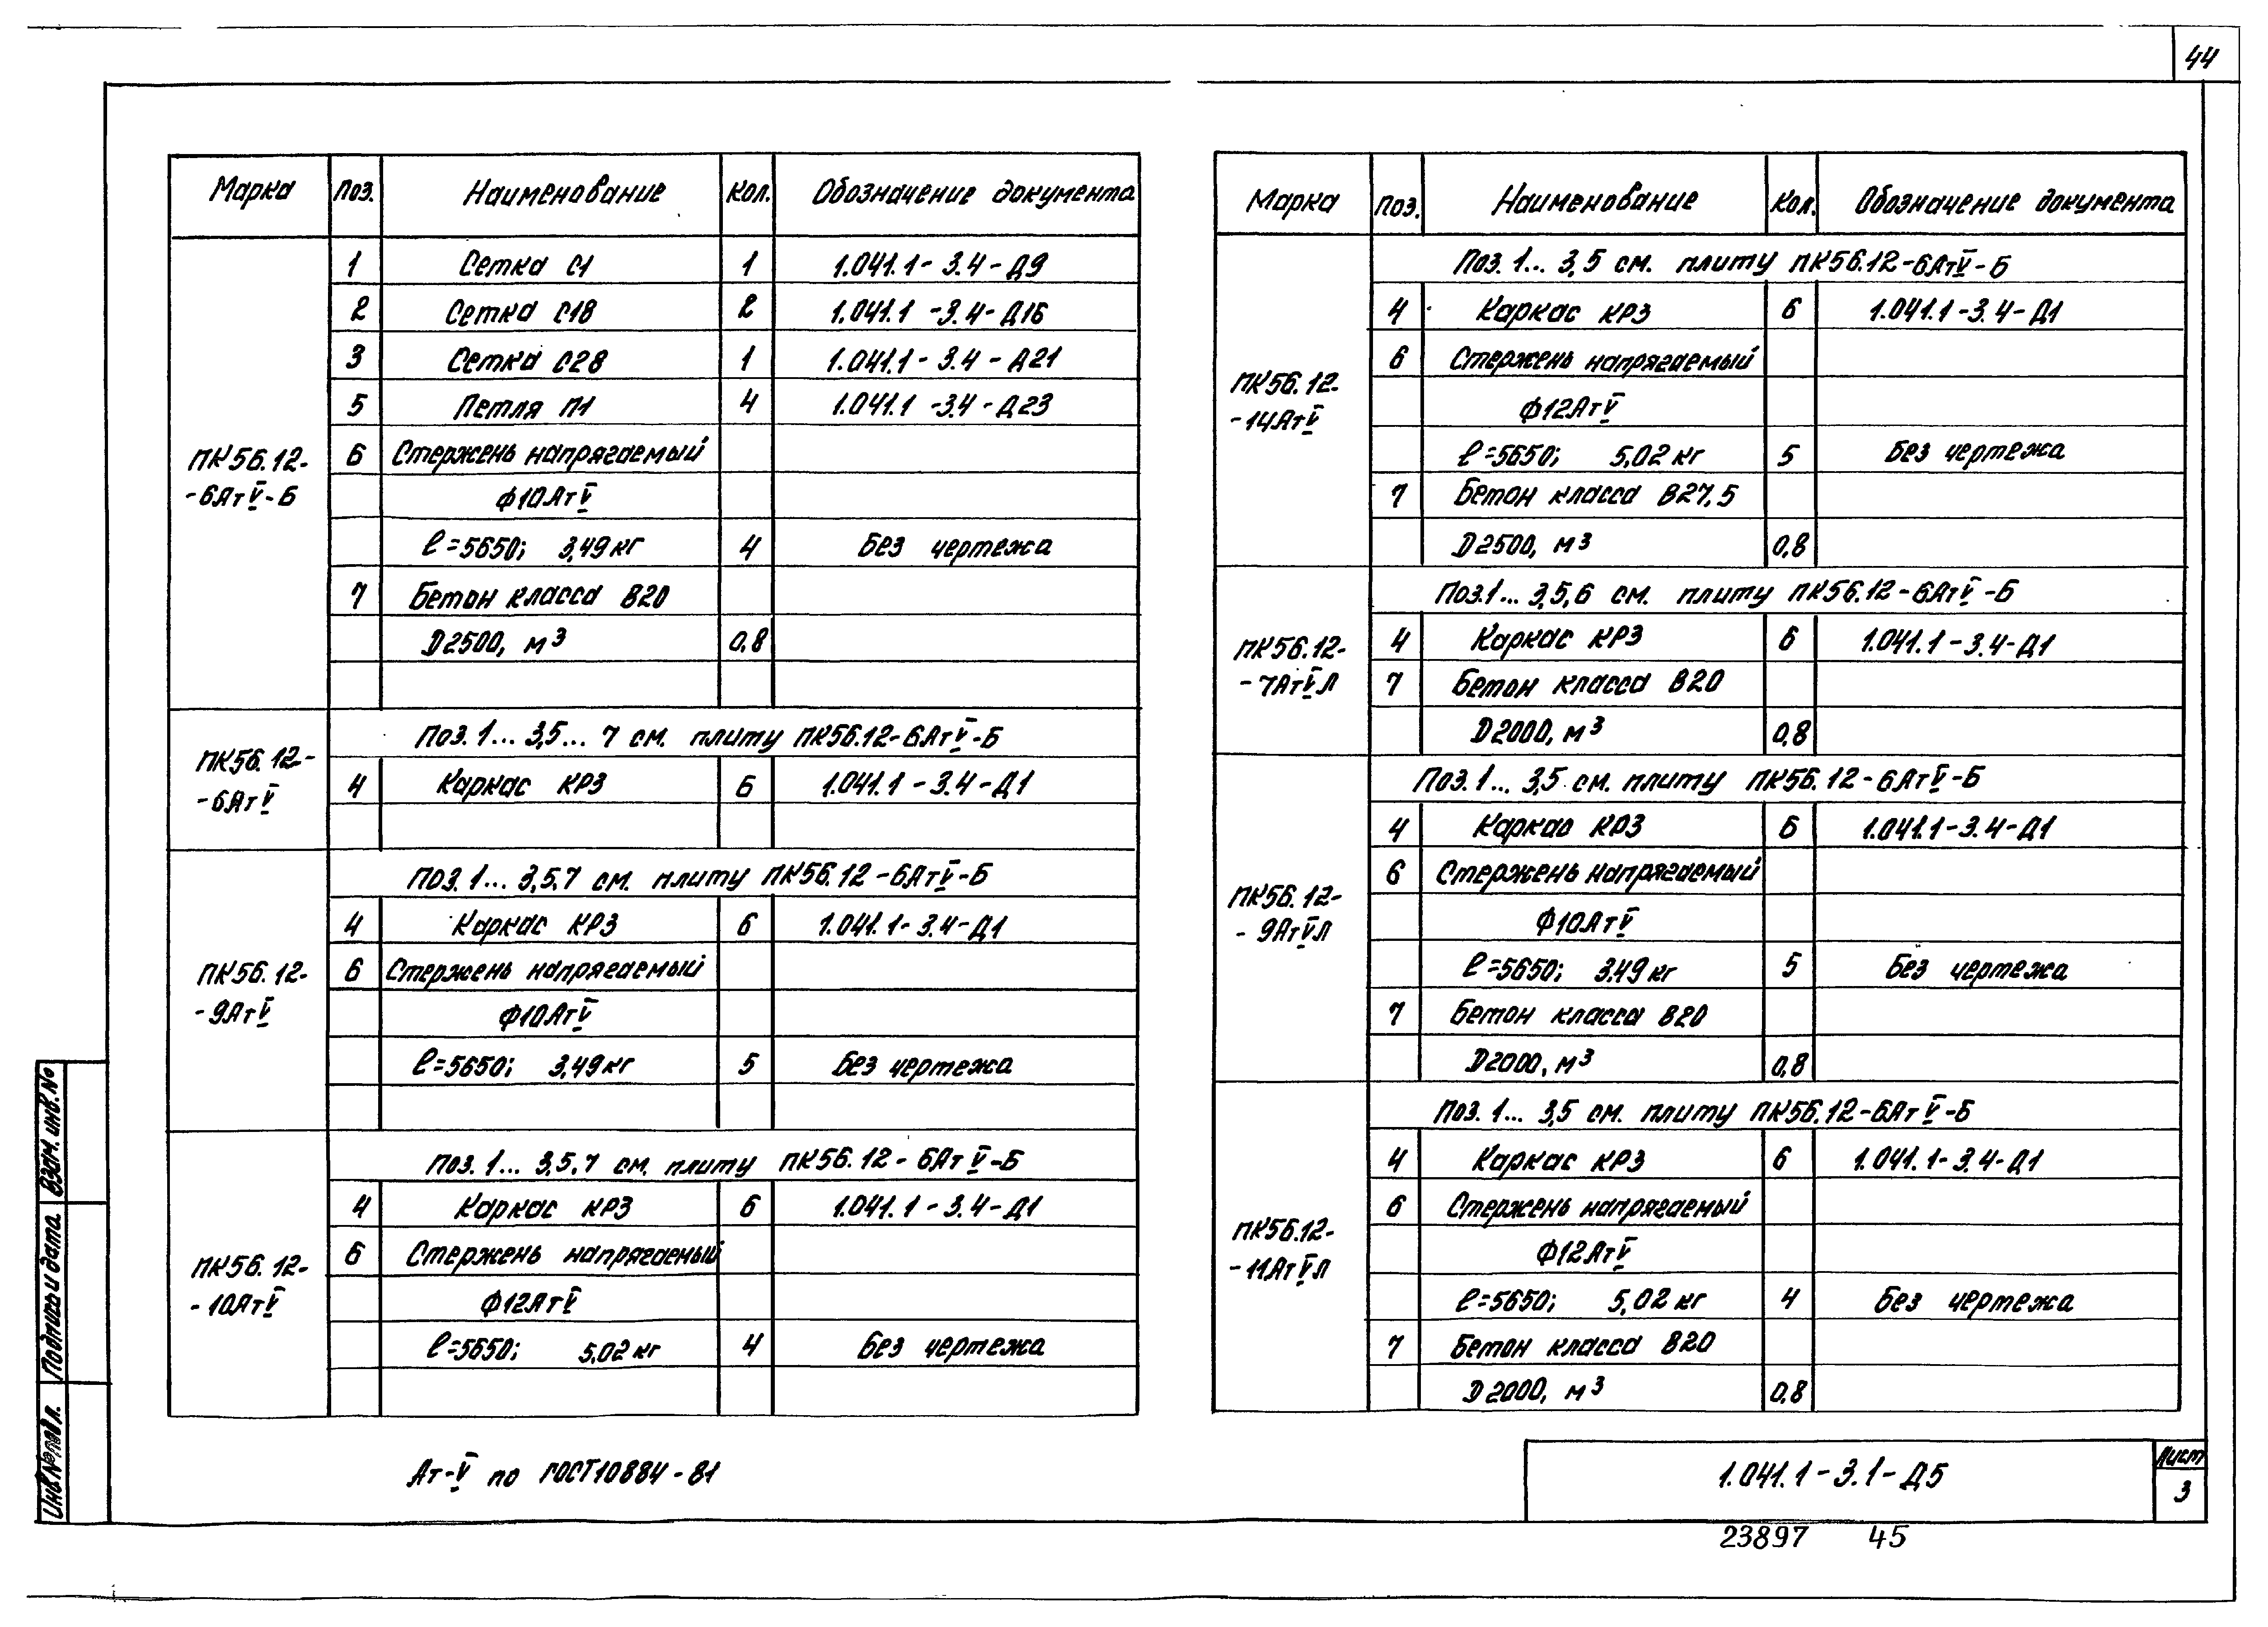 44
Марка Поз. Наименование Кол. Обозначение документа
1 Сетка С1 1 1.041.1-3.4-Д9
2 Сетка С18 2 1.041.1-3.4-Д16
3 Сетка С28 1 1.041.1-3.4-Д21
5 Петля П1 4 1.041.1-3.4-Д23
ПК56.12-
-6АтV-Б
6 Стержень напрягаемый
Ф10АтV
ℓ=5650; 3,49кг 4 Без чертежа
7 Бетон класса В20
D2500, м³ 0,8
ПК56.12-
-6АтV
Поз. 1... 3,5... 7 см. плиту ПК56.12-6АтV-Б
4 Каркас КР3 6 1.041.1-3.4-Д1
ПК56.12-
-9АтV
Поз. 1... 3,5,7 см. плиту ПК56.12-6АтV-Б
4 Каркас КР3 6 1.041.1-3.4-Д1
6 Стержень напрягаемый
Ф10АтV
ℓ=5650; 3,49кг 5 Без чертежа
ПК56.12-
-10АтV
Поз. 1... 3,5,7 см. плиту ПК56.12-6АтV-Б
4 Каркас КР3 6 1.041.1-3.4-Д1
6 Стержень напрягаемый
Ф12АтV
ℓ=5650; 5,02кг 4 Без чертежа
Марка Поз. Наименование Кол. Обозначение документа
ПК56.12-
-14АтV
Поз. 1... 3,5 см. плиту ПК56.12-6АтV-Б
4 Каркас КР3 6 1.041.1-3.4-Д1
6 Стержень напрягаемый
Ф12АтV
ℓ=5650; 5,02кг 5 Без чертежа
7 Бетон класса В27,5
D2500, м³ 0,8
ПК56.12-
-7АтVЛ
Поз.1... 3,5,6 см. плиту ПК56.12-6АтV-Б
4 Каркас КР3 6 1.041.1-3.4-Д1
7 Бетон класса В20
D2000, м³ 0,8
ПК56.12-
-9АтVЛ
Поз. 1... 3,5 см. плиту ПК56.12-6АтV-Б
4 Каркас КР3 6 1.041.1-3.4-Д1
6 Стержень напрягаемый
Ф10АтV
ℓ=5650; 3,49кг 5 Без чертежа
7 Бетон класса В20
D2000, м³ 0,8
ПК56.12-
-11АтVЛ
Поз. 1... 3,5 см. плиту ПК56.12-6АтV-Б
4 Каркас КР3 6 1.041.1-3.4-Д1
6 Стержень напрягаемый
Ф12АтV
ℓ=5650; 5,02кг 4 Без чертежа
7 Бетон класса В20
D2000, м³ 0,8
Ат-V по ГОСТ10884-81
1.041.1-3.1-Д5
Лист
3
23897 45
Взам. инв.№
Подпись и дата
Инв№подл.